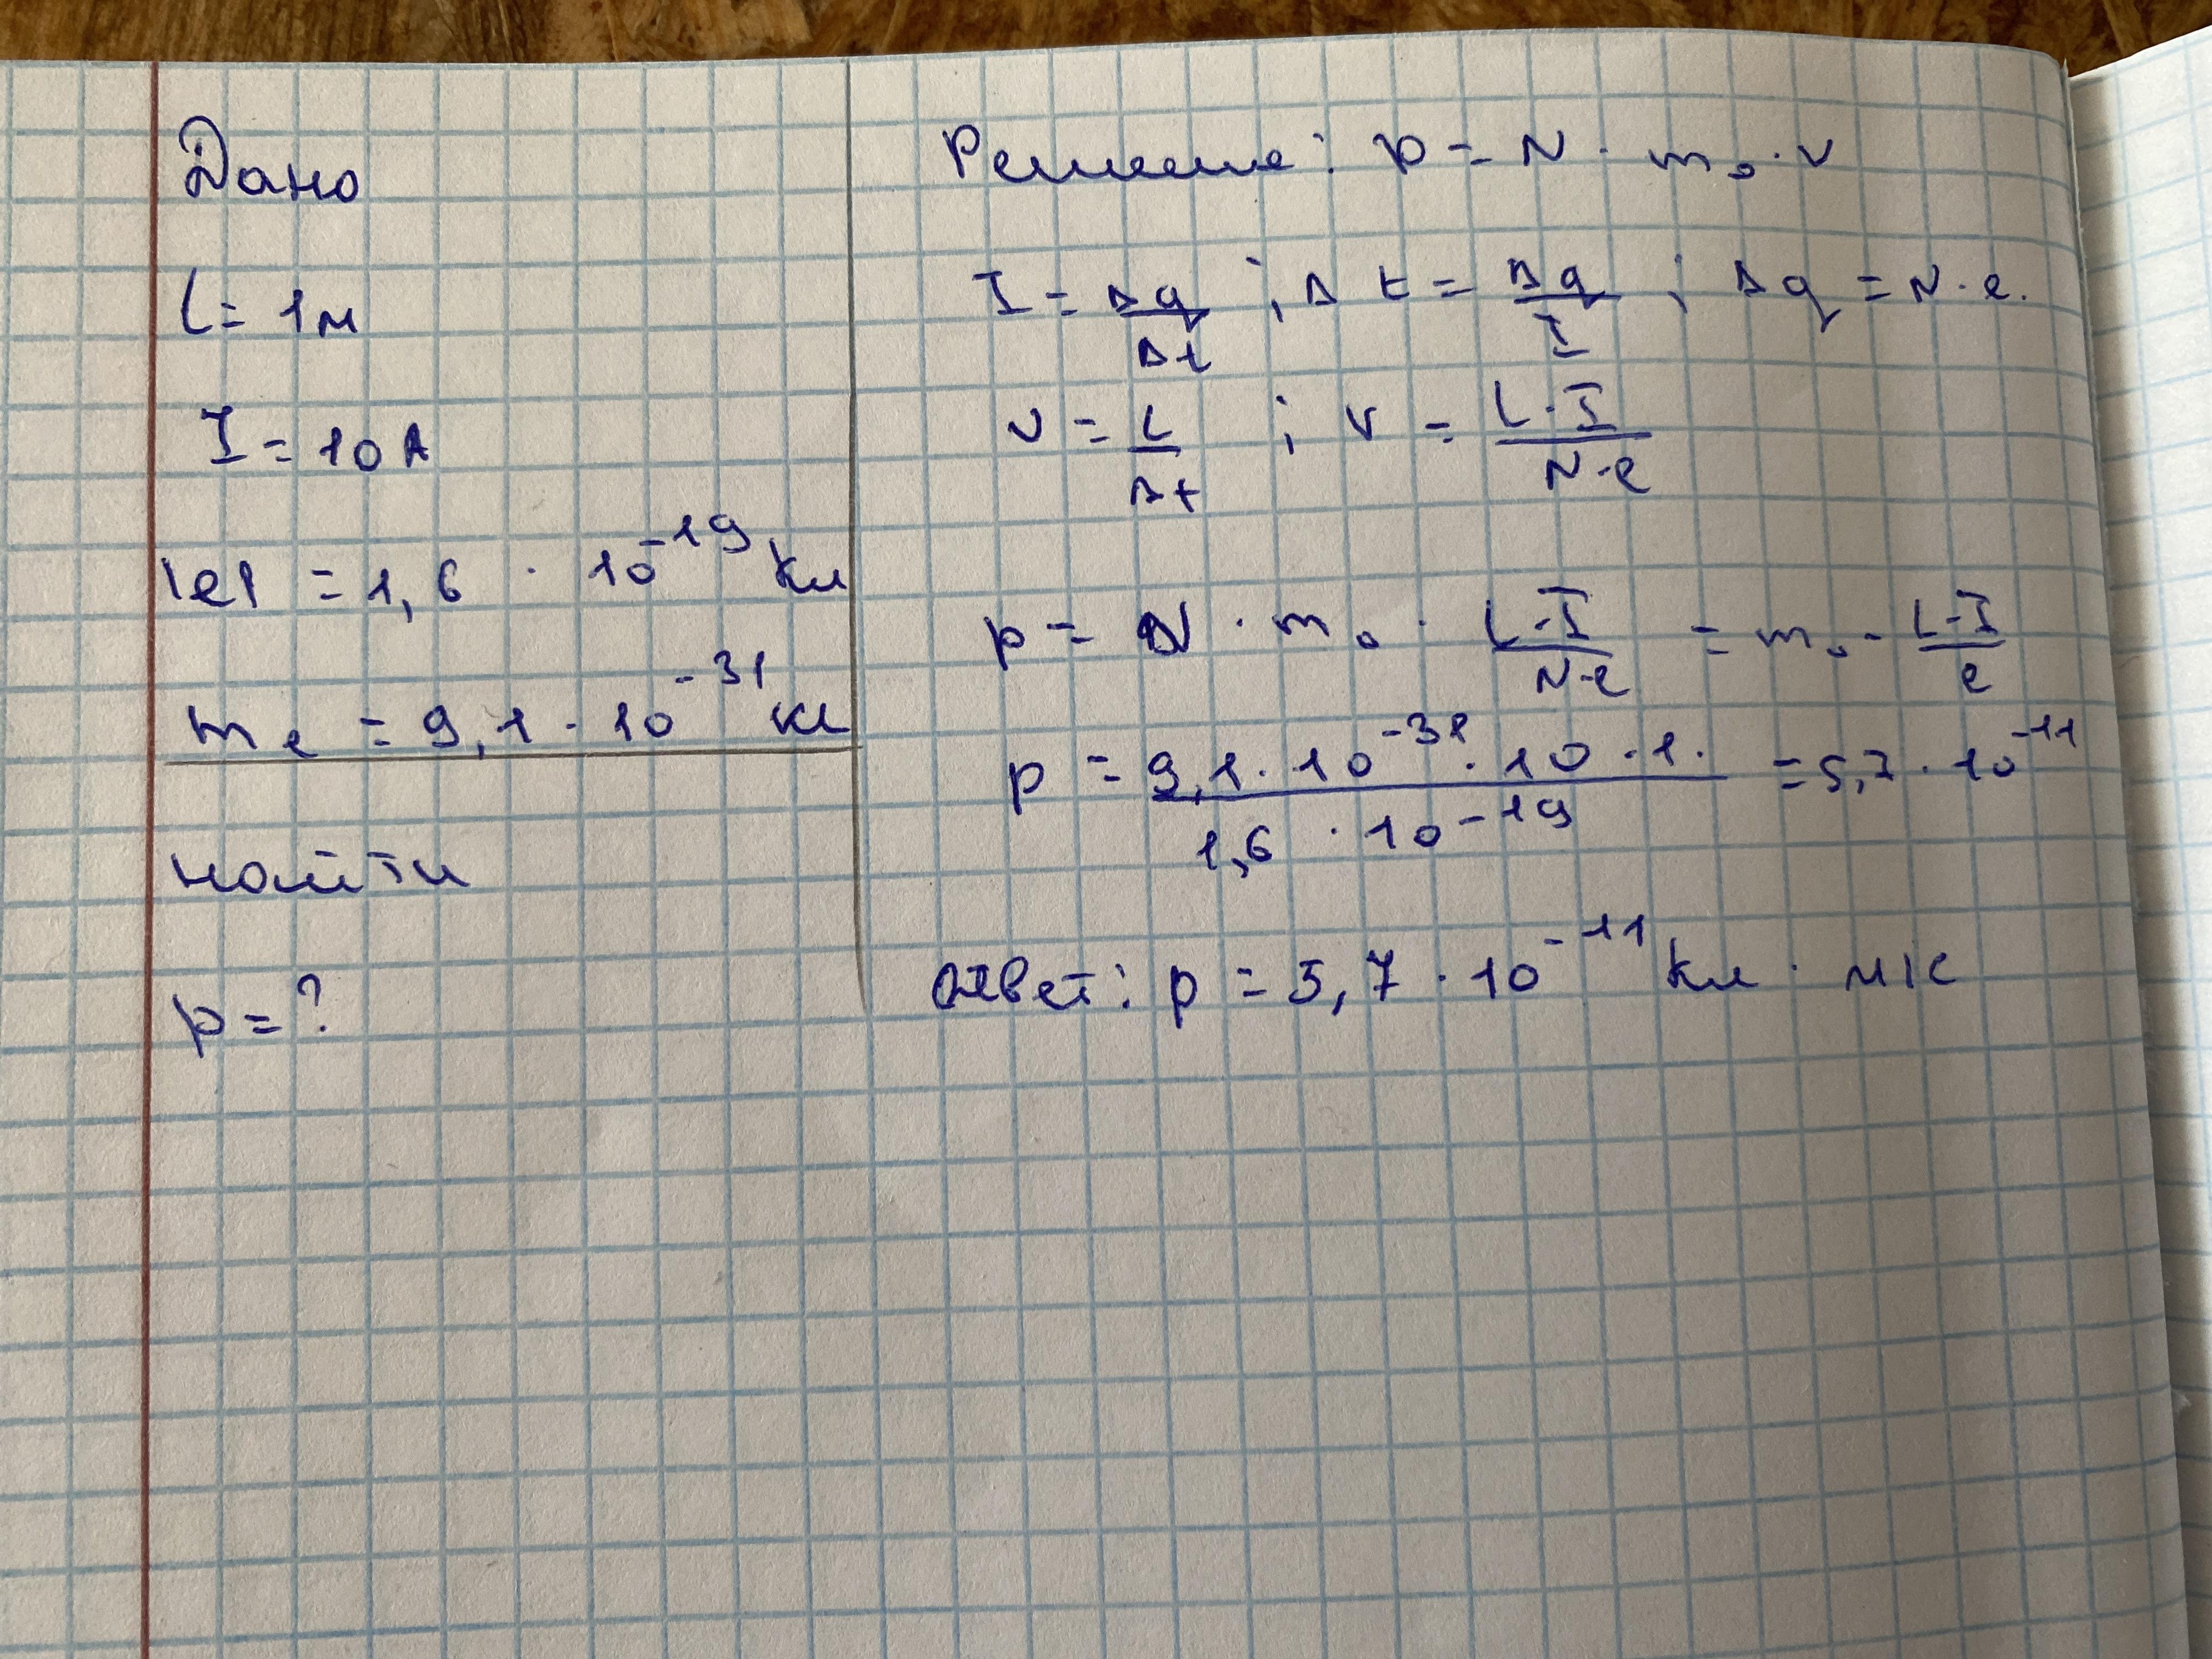 Дано
L = 1м
I = 10 А
|e| = 1,6 · 10^-19 Кл
m_e = 9,1 · 10^-31 кг
найти
p = ?
Решение: p = N · m_0 · v
I = Δq/Δt ; Δt = Δq/I ; Δq = N·e.
v = L/Δt ; v = L·I/N·e
p = N · m_0 · L·I/N·e = m_0 · L·I/e
p = 9,1 · 10^-31 · 10 · 1·/1,6 · 10^-19 = 5,7 · 10^-11
Ответ: p = 5,7 · 10^-11 Кл · м/с